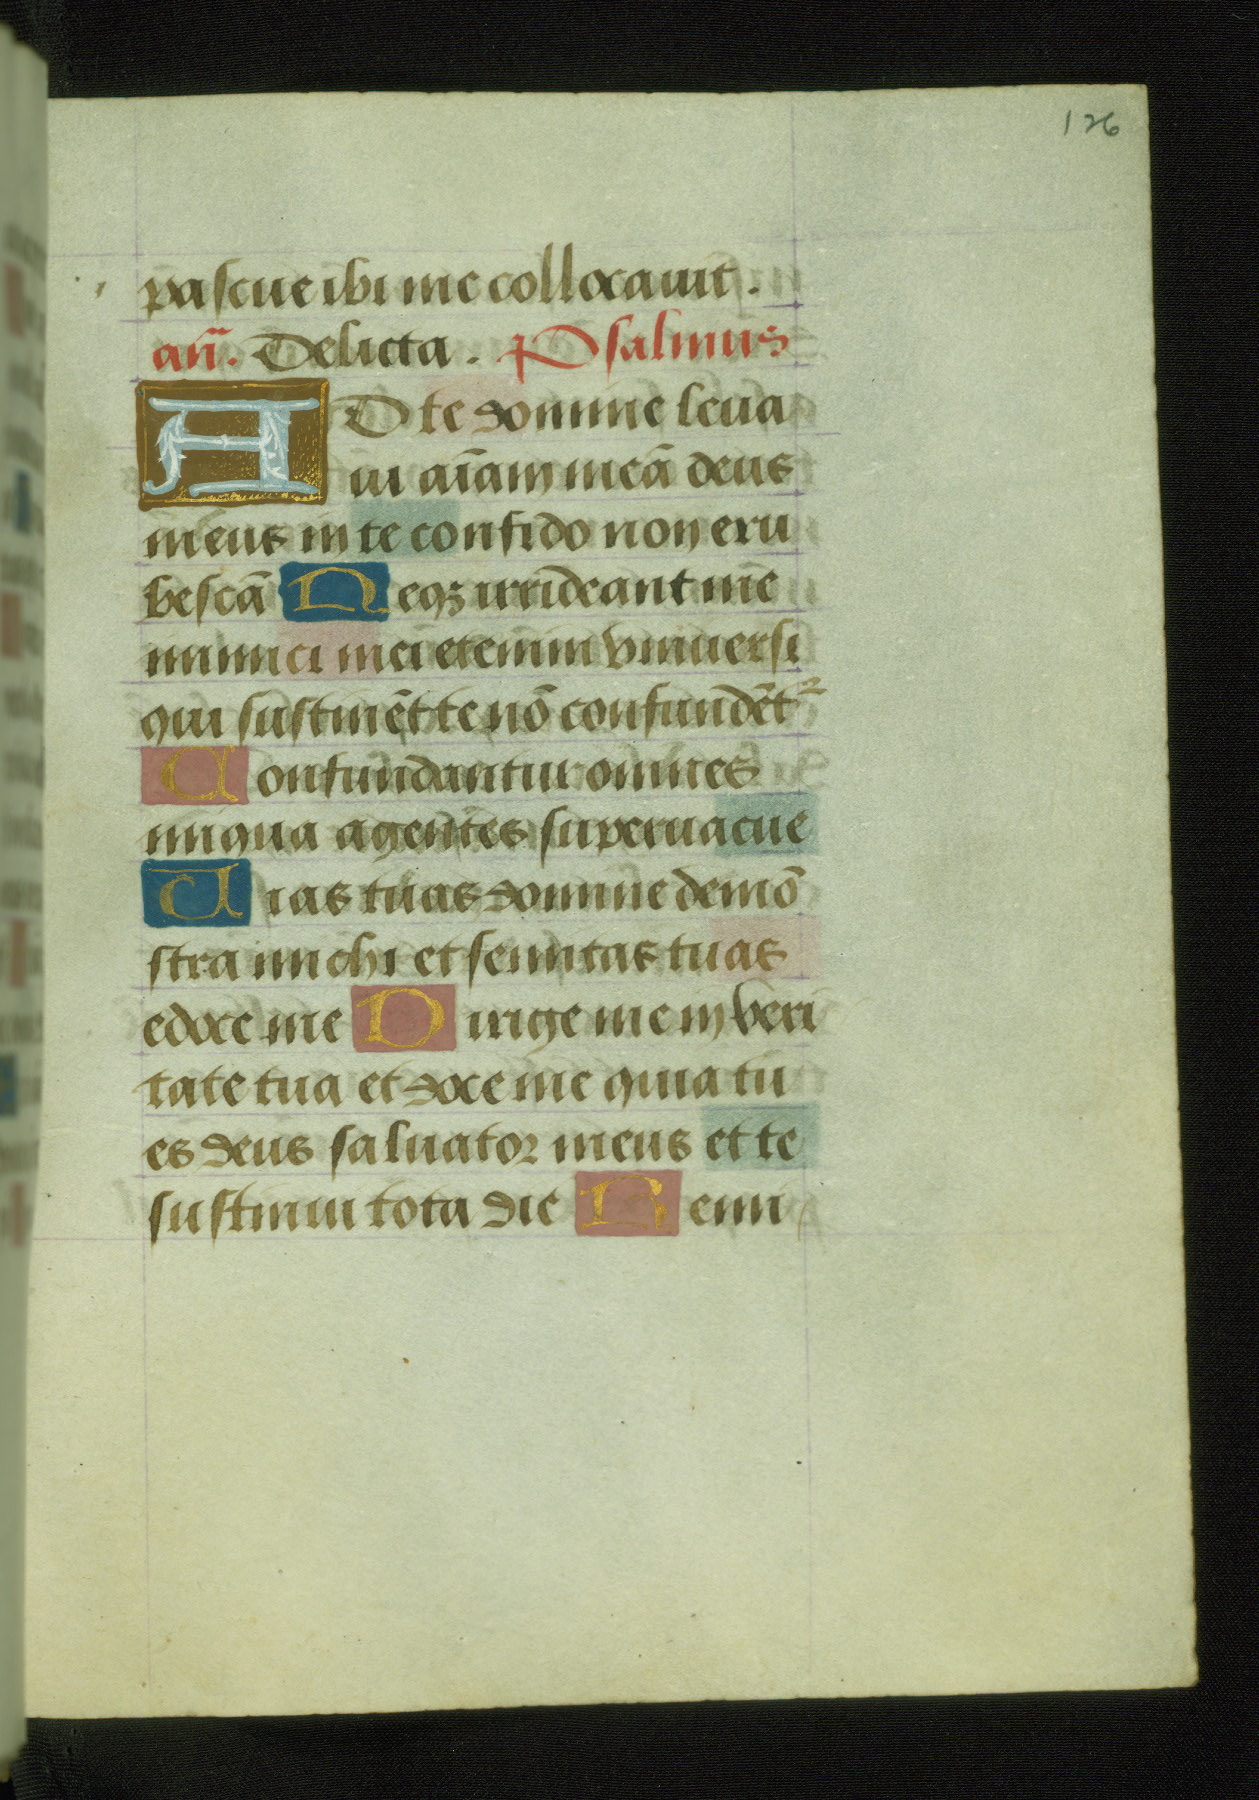 126
pascue ibi me collocauit.
añ. Delicta. Psalmus
AD te domine leua
ui aīam meā deus
meus in te confido non eru
bescā Neqȝ irrideant me
inimici mei etenim vniuersi
qui sustinēt te nō confundēt᷑
Confundantur omnes
iniqua agentes superuacue
Uias tuas domine demō
stra michi et semitas tuas
edoce me Dirige me in veri
tate tua et doce me quia tu
es deus saluator meus et te
sustinui tota die Remi